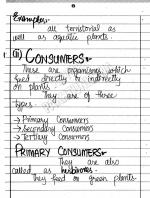 Examples:-
all terrestrial as
well as aquatic plants.
(ii) CONSUMERS:-
These are organisms which
feed directly or indirectly
on plants.
They are of three
types.
→ Primary Consumers
→ Secondary Consumers
→ Tertiary Consumers
PRIMARY CONSUMERS:-
They are also
called as herbivores.
They feed on green plants